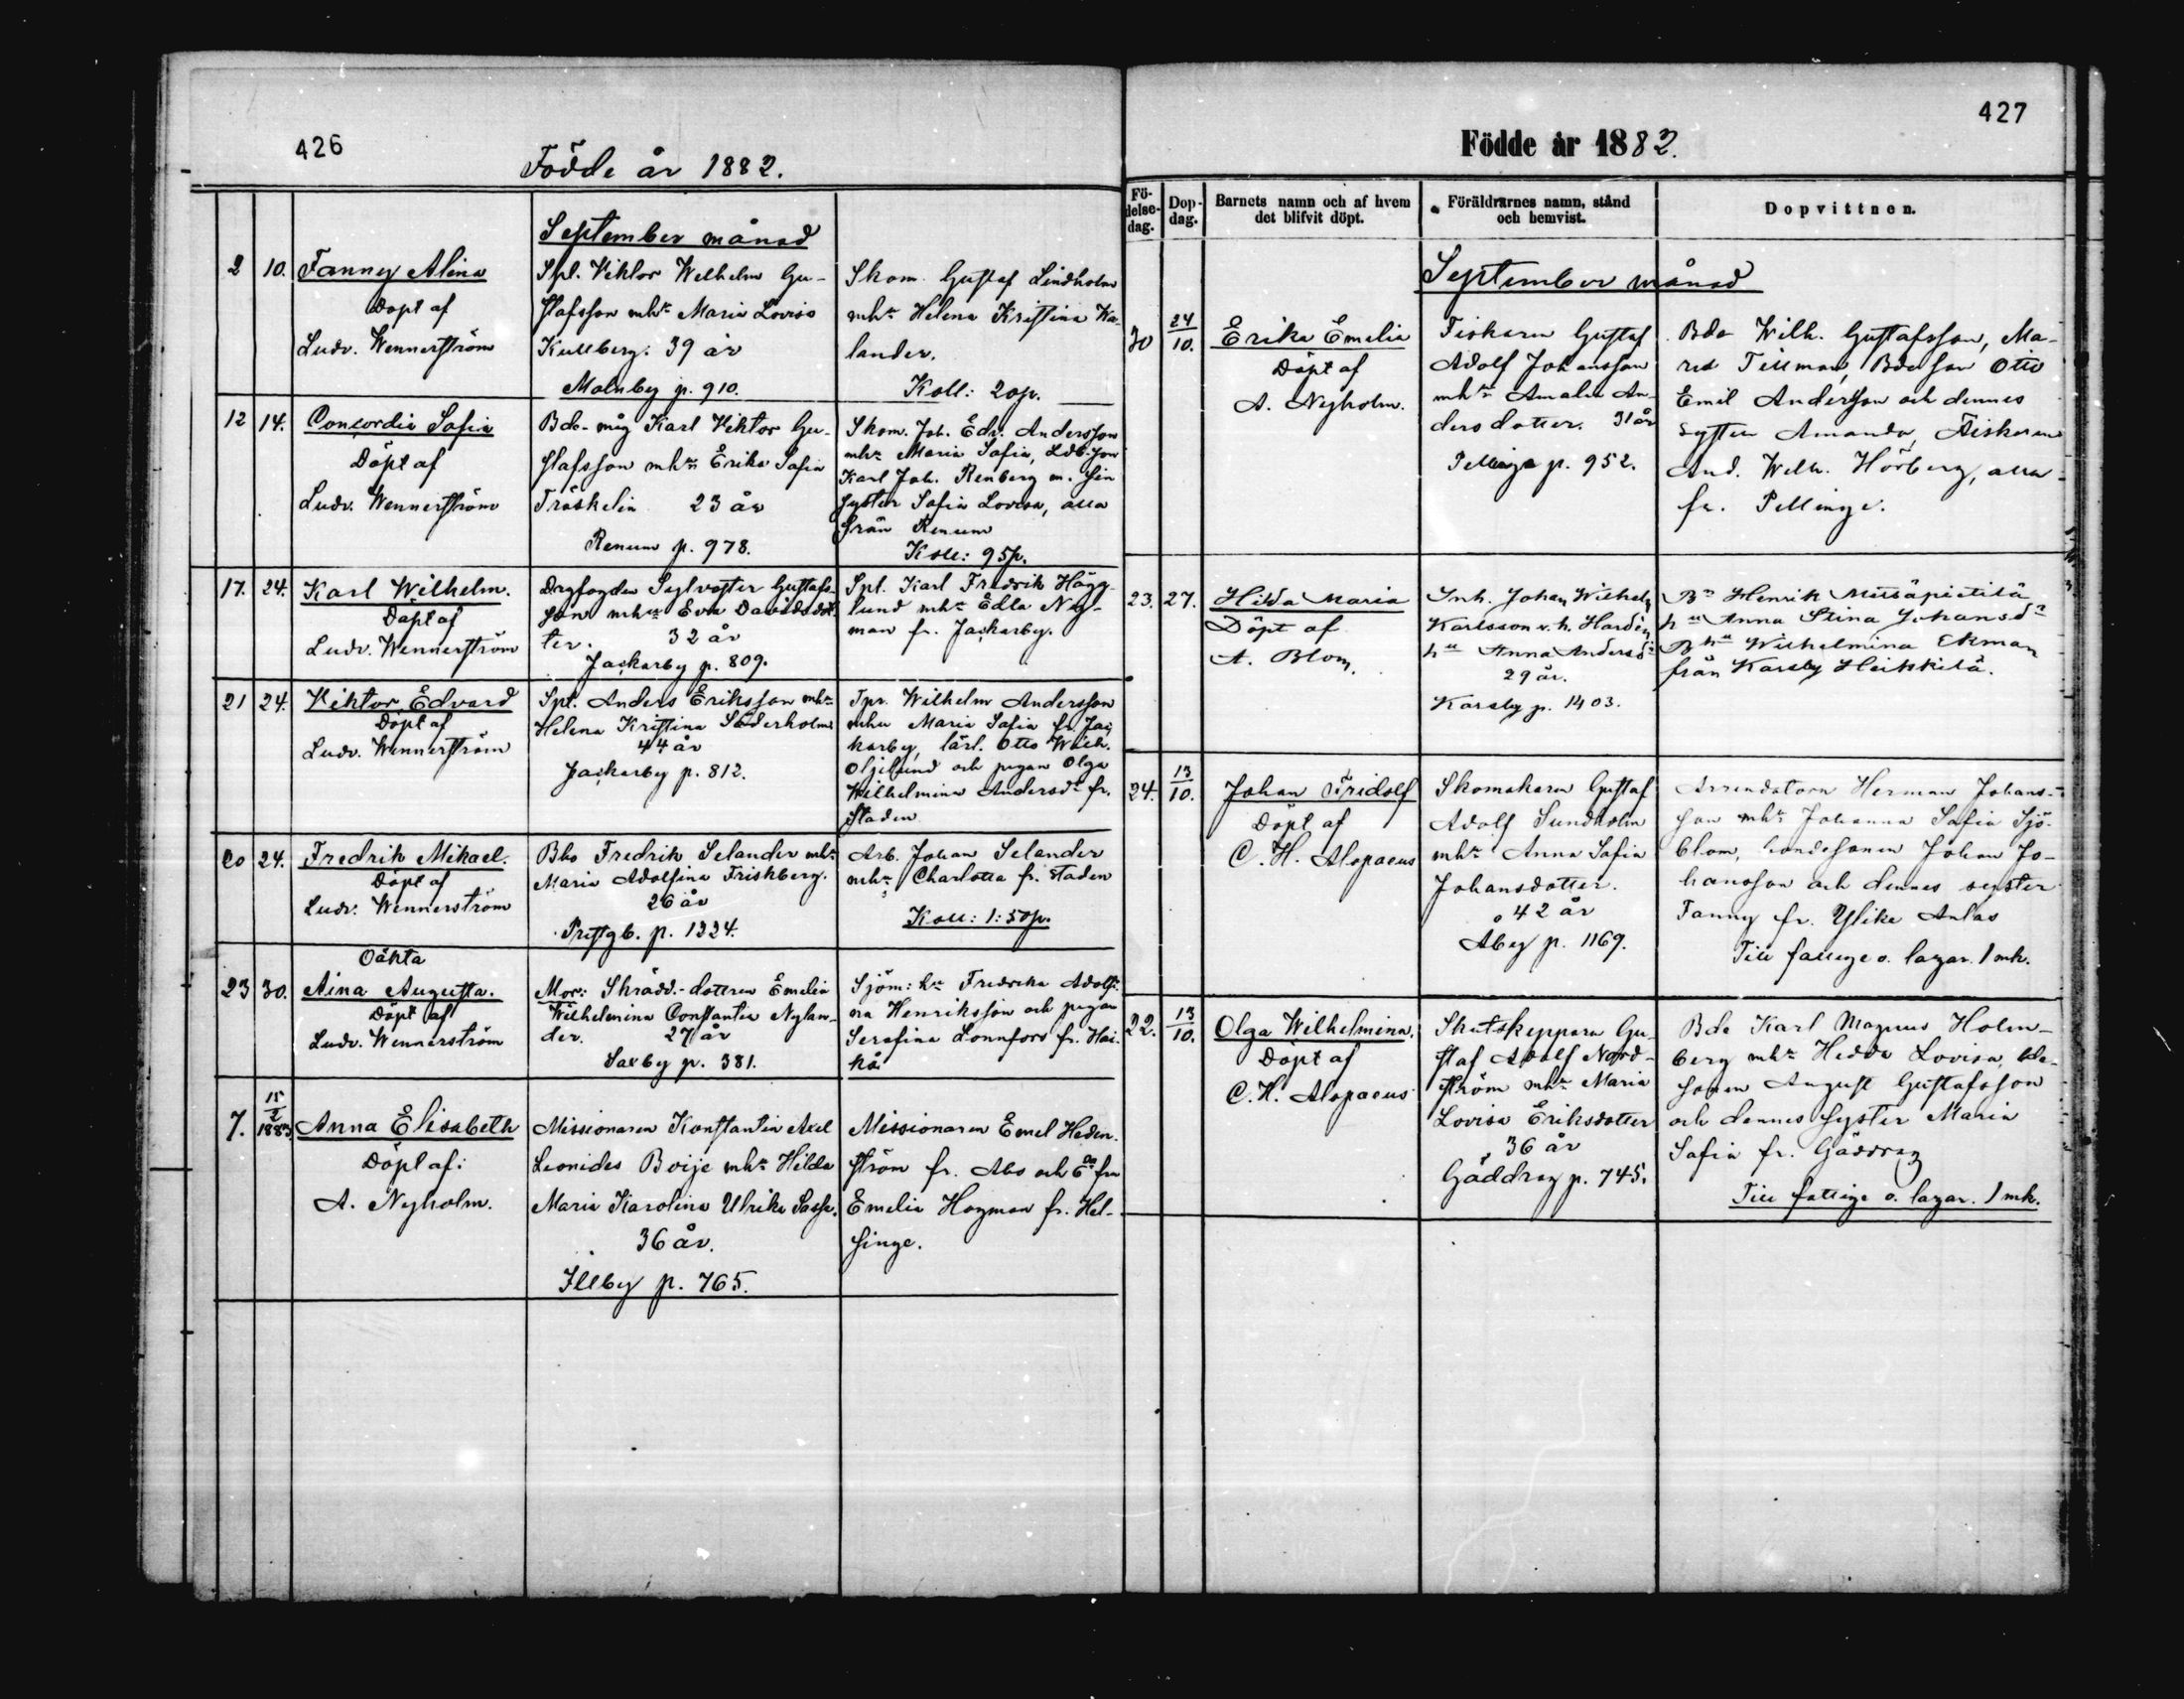 426
Födde år 1882.
September månad
2 10. Fanny Alina
Döpt af
Ludv. Wennerström
Spl. Viktor Wilhelm Gu-
stafsson mhu Maria Lovisa
Kullberg. 39 år
Molnby p. 910.
Skom. Gustaf Lindholm
mhu Helena Kristina Ka-
lander.
Koll: 20p.
12 14. Concordia Sofia
Döpt af
Ludv. Wennerström
Bde-måg Karl Viktor Gu-
stafsson mhu Erika Sofia
Träskelin 23 år
Renum p. 978.
Skom. Joh. Edv. Andersson
mhu Maria Sofia, Ldb.son
Karl Joh. Renberg m. sin
syster Sofia Lovisa, alla
från Renum
Koll: 95p.
17. 24. Karl Wilhelm.
Döpt af
Ludv. Wennerström
Drgfogden Sylvester Gustafs-
son mhu Eva Davidsdot-
ter. 32 år
Jackarby p. 809.
Spl. Karl Fredrik Hägg-
lund mhu Edla Ny-
man fr. Jackarby.
21 24. Viktor Edvard
Döpt af
Ludv. Wennerström
Spl. Anders Eriksson mhu
Helena Kristina Söderholm
44 år
Jackarby p. 812.
Tpr. Wilhelm Andersson
mhu Maria Sofia fr. Jac-
karby, lärl. Otto Wilh.
Oljelund och pigan Olga
Wilhelmina Andersdr fr.
staden
20 24. Fredrik Mikael.
Döpt af
Ludv. Wennerström
Bbo Fredrik Selander mhu
Maria Adolfina Friskberg.
26 år
Prestgb. p. 1224.
Arb. Johan Selander
mhu Charlotta fr. staden
Koll: 1:50p.
Oäkta
23 30. Aina Augusta.
Döpt af
Ludv. Wennerström
Mor: Skrädd.-dottren Emelia
Wilhelmina Constantia Nylan-
der. 27 år
Saxby p. 381.
Sjöm: hu Fredrika Adolfi-
na Henriksson och pigan
Serafina Lönnfors fr. Hai-
kå
7. 15/2 1883 Anna Elisabeth
Döpt af:
A. Nyholm.
Missionaren Konstantin Axel
Leonides Boije mhu Hilda
Maria Karolina Ulrika Sasse.
36 år.
Illby p. 765.
Missionaren Emel Heden-
ström fr. Abo och fru
Emelia Hagman fr. Hel-
singe.
427
Födde år 1882.
Fö-
delse-
dag.
Dop-
dag.
Barnets namn och af hvem
det blifvit döpt.
Föräldrarnes namn, stånd
och hemvist.
Dopvittnen.
September månad
30 24/10. Erika Emelia
Döpt af
A. Nyholm.
Fiskaren Gustaf
Adolf Johansson
mhu Amalia An-
dersdotter. 31 år
Pellinge p. 952.
Bde Wilh. Gustafsson, Ma-
ria Tillman, Bdeson Otto
Emil Andersson och dennes
syster Amanda, Fiskaren
And. Wilh. Hörberg, alla
fr. Pellinge.
23. 27. Hilda Maria
Döpt af
A. Blom.
Inh. Johan Wilhelm
Karlsson v. h. Hardin
hu Anna Andersdr
29 år.
Karsby p. 1403.
Bn Henrik Metsäpietilä
hu Anna Stina Johansdr
Bhu Wilhelmina Ekman
från Karsby Heikkilä.
24. 13/10. Johan Fridolf
Döpt af
C. H. Alopaeus
Skomakaren Gustaf
Adolf Sundholm
mhu Anna Sofia
Johansdotter.
42 år
Åby p. 1169.
Arrendatorn Herman Johans-
son mhu Johanna Sofia Sjö-
blom, bondesonen Johan Jo-
hansson och dennes syster
Fanny fr. Ylike Anlas
Till fattige o. lazar. 1 mk.
22. 13/10. Olga Wilhelmina.
Döpt af
C. H. Alopaeus
Skutskepparn Gu-
staf Adolf Nord-
ström mhu Maria
Lovisa Eriksdotter
36 år
Gäddrag p. 745.
Bde Karl Magnus Holm-
berg mhu Hedda Lovisa, bde-
sonen August Gustafsson
och dennes syster Maria
Sofia fr. Gäddrag
Till fattige o. lazar. 1 mk.